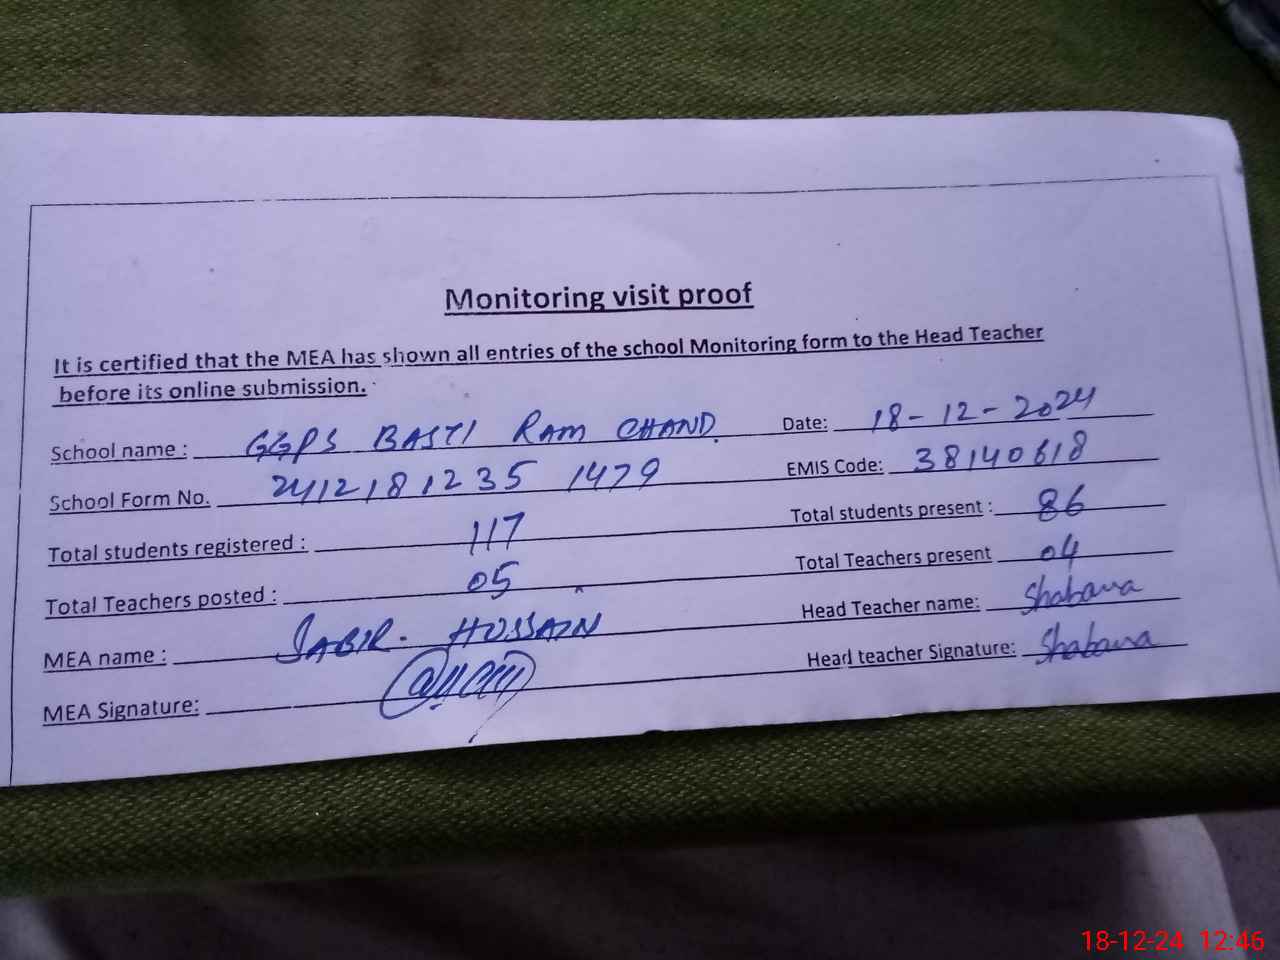 Monitoring visit proof
It is certified that the MEA has shown all entries of the school Monitoring form to the Head Teacher
before its online submission.
School name : GGPS BASTI RAM CHAND. Date: 18-12-2024
School Form No. 2412181235 1479 EMIS Code: 38140618
Total students registered : 117 Total students present : 86
Total Teachers posted : 05 Total Teachers present 04
MEA name : SABIR. HUSSAIN Head Teacher name: Shabana
MEA Signature: Head teacher Signature: Shabana
18-12-24 12:46